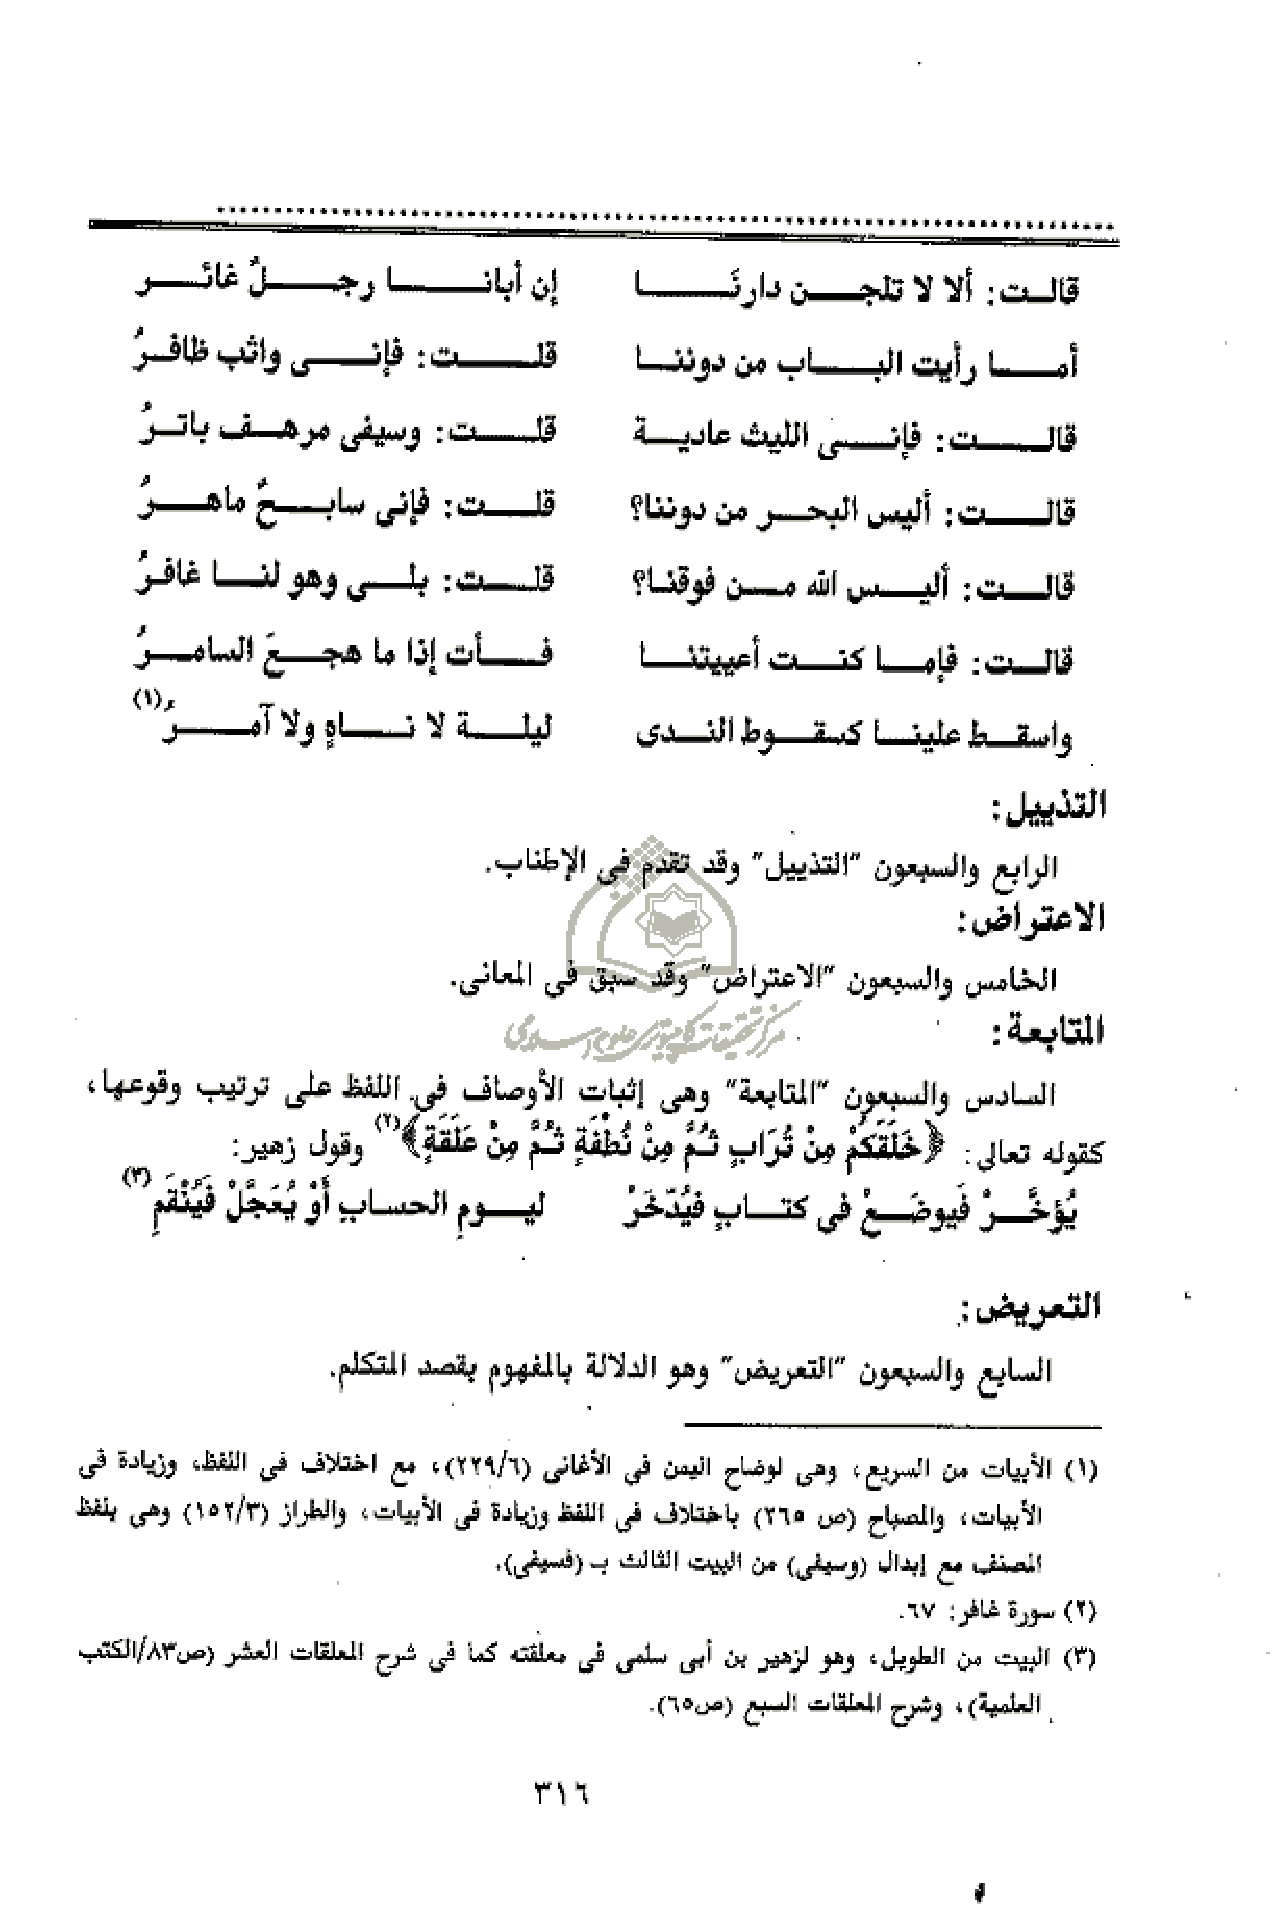 قالت: ألا لا تلجن دارنَا إن أبانا رجلُ غائر
أما رأيت الباب من دوننا قلت: فإنى واثب ظافرُ
قالت: فإنى الليث عادية قلت: وسيفى مرهف باترُ
قالت: أليس البحر من دوننا؟ قلت: فإنى سابحٌ ماهرُ
قالت: أليس الله من فوقنا؟ قلت: بلى وهو لنا غافرُ
قالت: فإما كنت أعييتنا فأت إذا ما هجعَ السامرُ
واسقط علينا كسقوط الندى ليلة لا ناهٍ ولا آمرُ (١)
التذييل:
الرابع والسبعون "التذييل" وقد تقدم فى الإطناب.
الاعتراض:
الخامس والسبعون "الاعتراض" وقد سبق فى المعانى.
مركز تحقيقات كامپيوترى علوم اسلامى
المتابعة:
السادس والسبعون "المتابعة" وهى إثبات الأوصاف فى اللفظ على ترتيب وقوعها،
كقوله تعالى: ﴿خَلَقَكُمْ مِنْ تُرَابٍ ثُمَّ مِنْ نُطْفَةٍ ثُمَّ مِنْ عَلَقَةٍ﴾ (٢) وقول زهير:
يُؤخَّرْ فَيوضَعْ فى كتابٍ فيُدّخَرْ ليومِ الحسابِ أَوْ يُعَجَّلْ فَيُنْقَمِ (٣)
التعريض:
السابع والسبعون "التعريض" وهو الدلالة بالمفهوم بقصد المتكلم.
(١) الأبيات من السريع، وهى لوضاح اليمن فى الأغانى (٢٢٩/٦)، مع اختلاف فى اللفظ، وزيادة فى
الأبيات، والمصباح (ص ٢٦٥) باختلاف فى اللفظ وزيادة فى الأبيات، والطراز (١٥٢/٣) وهى بلفظ
المصنف مع إبدال (وسيفى) من البيت الثالث بـ (فسيفى).
(٢) سورة غافر: ٦٧.
(٣) البيت من الطويل، وهو لزهير بن أبى سلمى فى معلقته كما فى شرح المعلقات العشر (ص٨٣/الكتب
العلمية)، وشرح المعلقات السبع (ص٦٥).
٣١٦